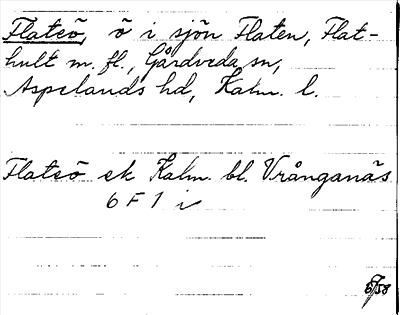 Flateö, ö i sjön Flaten, Flat-
hult m. fl., Gårdveda sn,
Aspelands hd, Kalm. l.
Flateö ek Kalm. bl. Vrånganäs
6 F 1 i